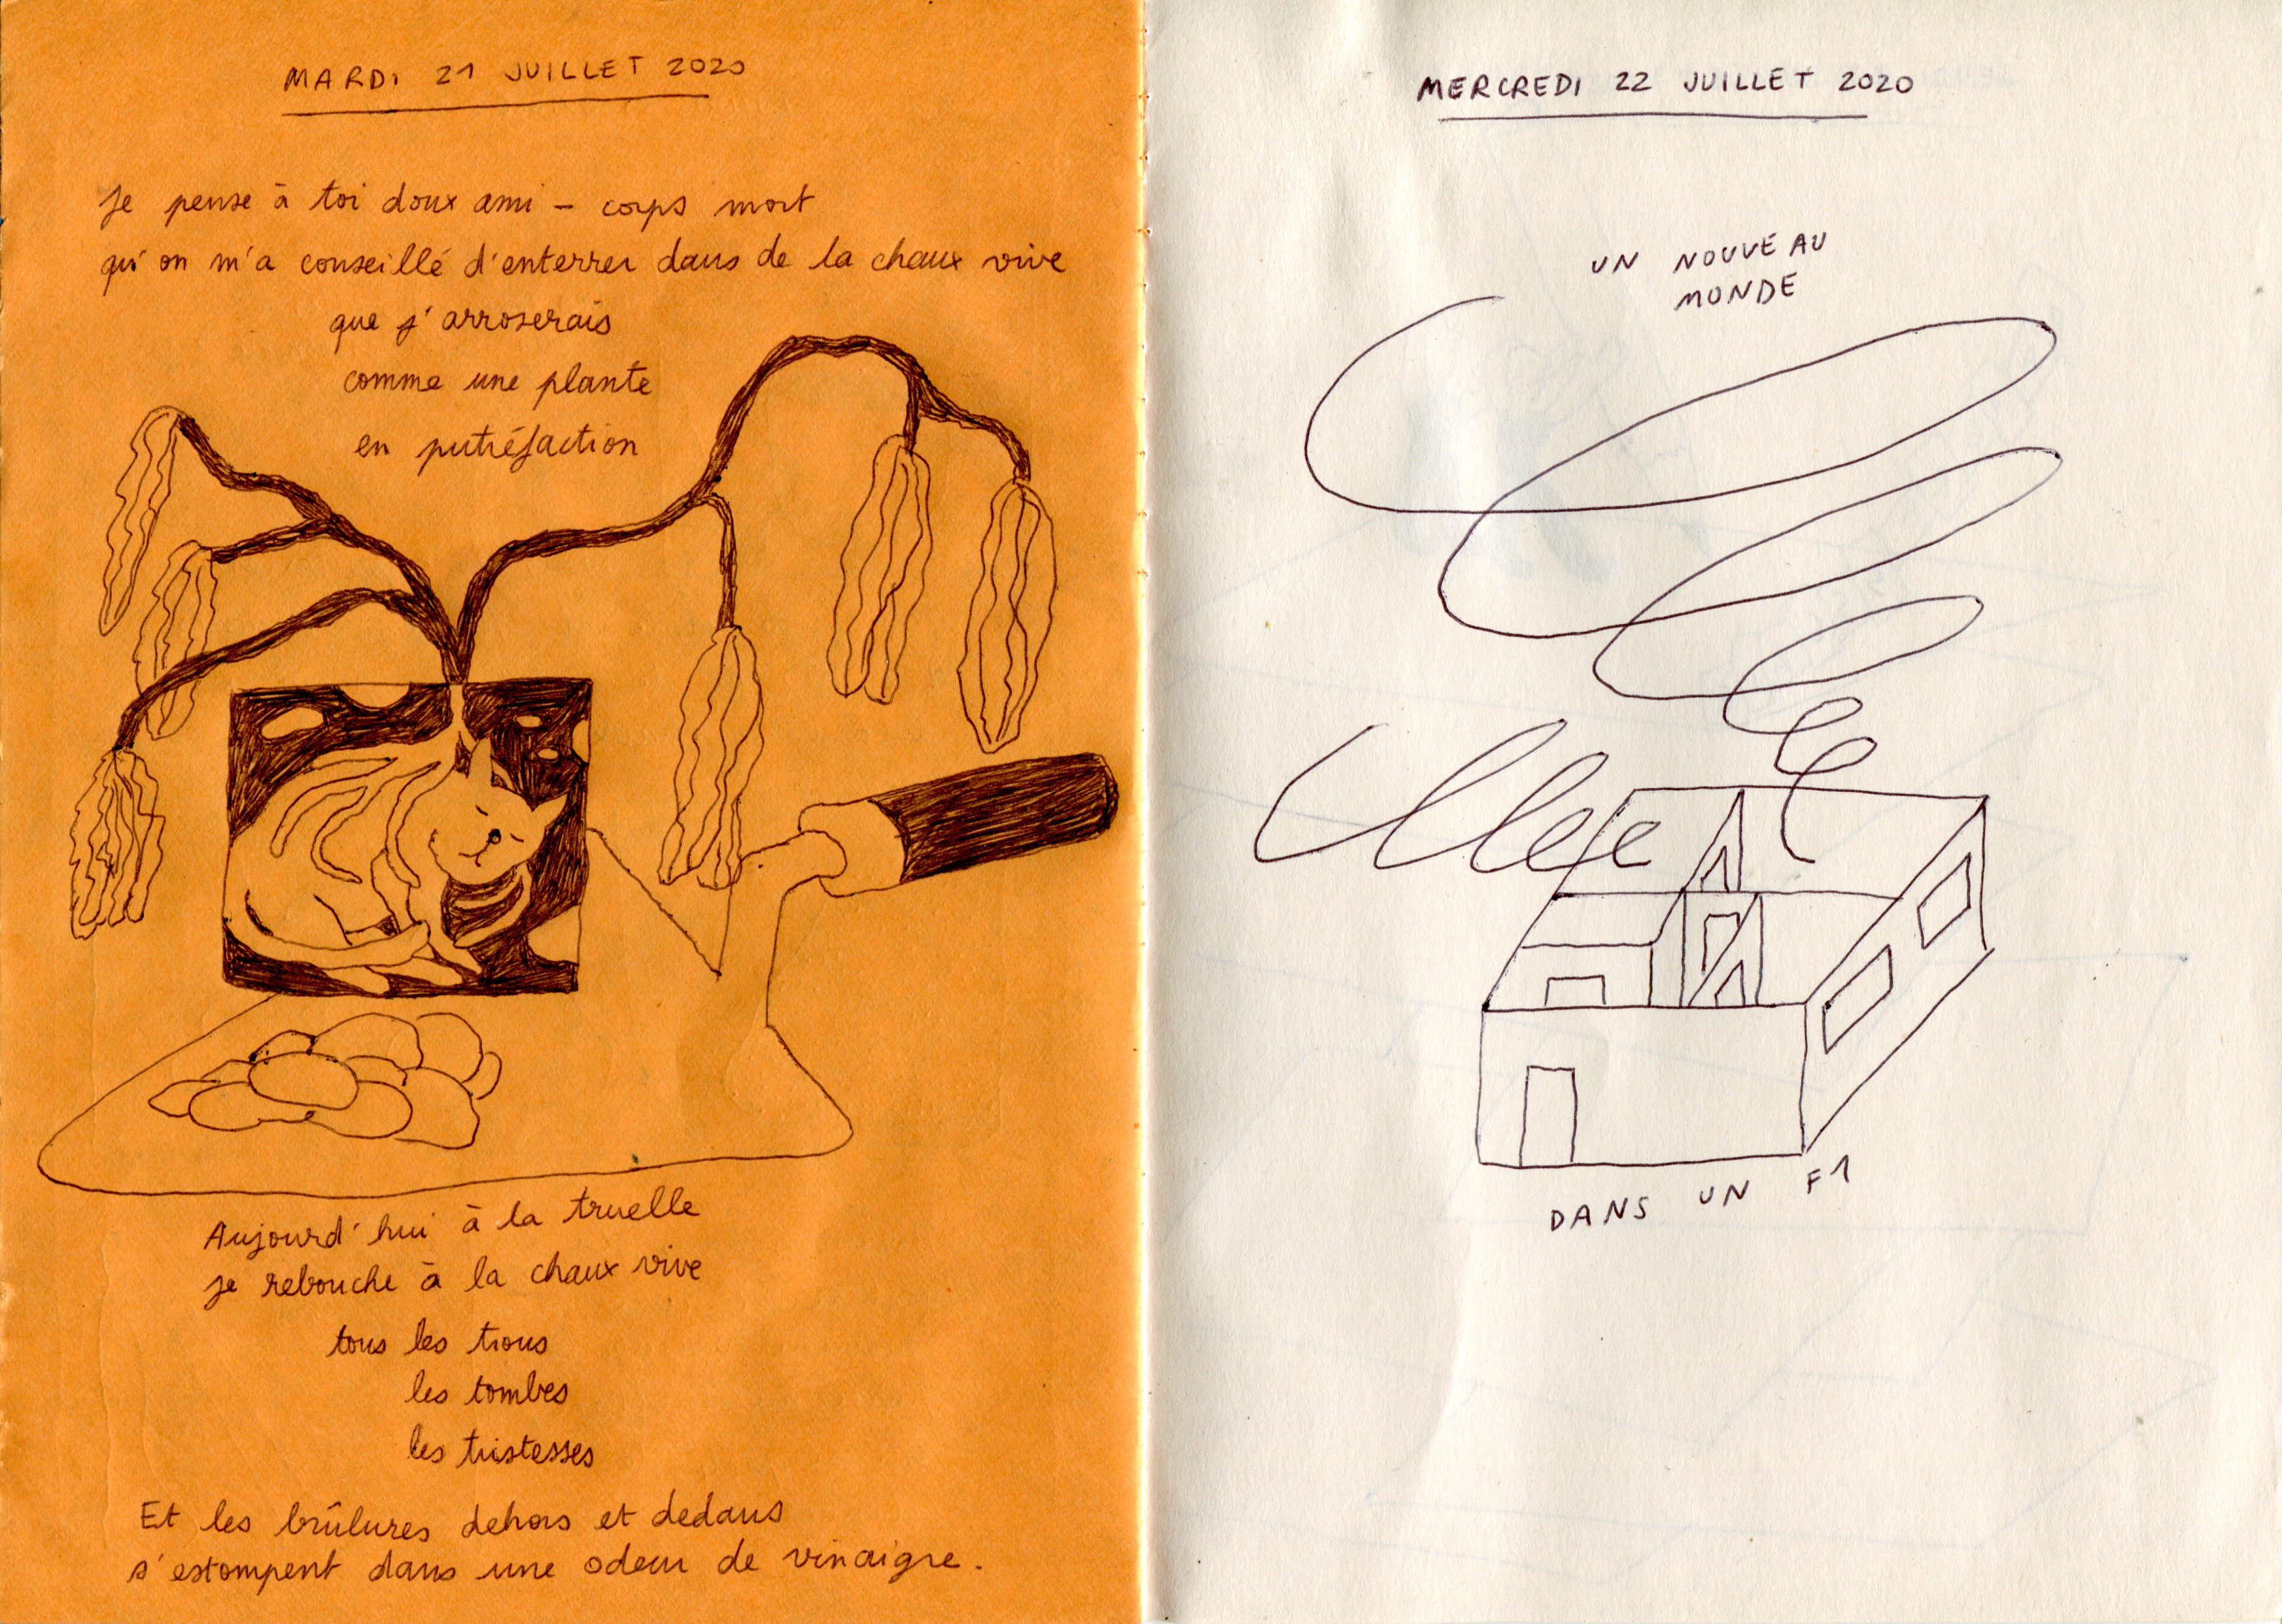 MARDI 21 JUILLET 2020
Je pense à toi doux ami – corps mort
qu'on m'a conseillé d'enterrer dans de la chaux vive
que j'arroserais
comme une plante
en putréfaction
Aujourd'hui à la truelle
je rebouche à la chaux vive
tous les trous
les tombes
les tristesses
Et les brûlures dehors et dedans
s'estompent dans une odeur de vinaigre.
MERCREDI 22 JUILLET 2020
UN NOUVEAU
MONDE
DANS UN F1